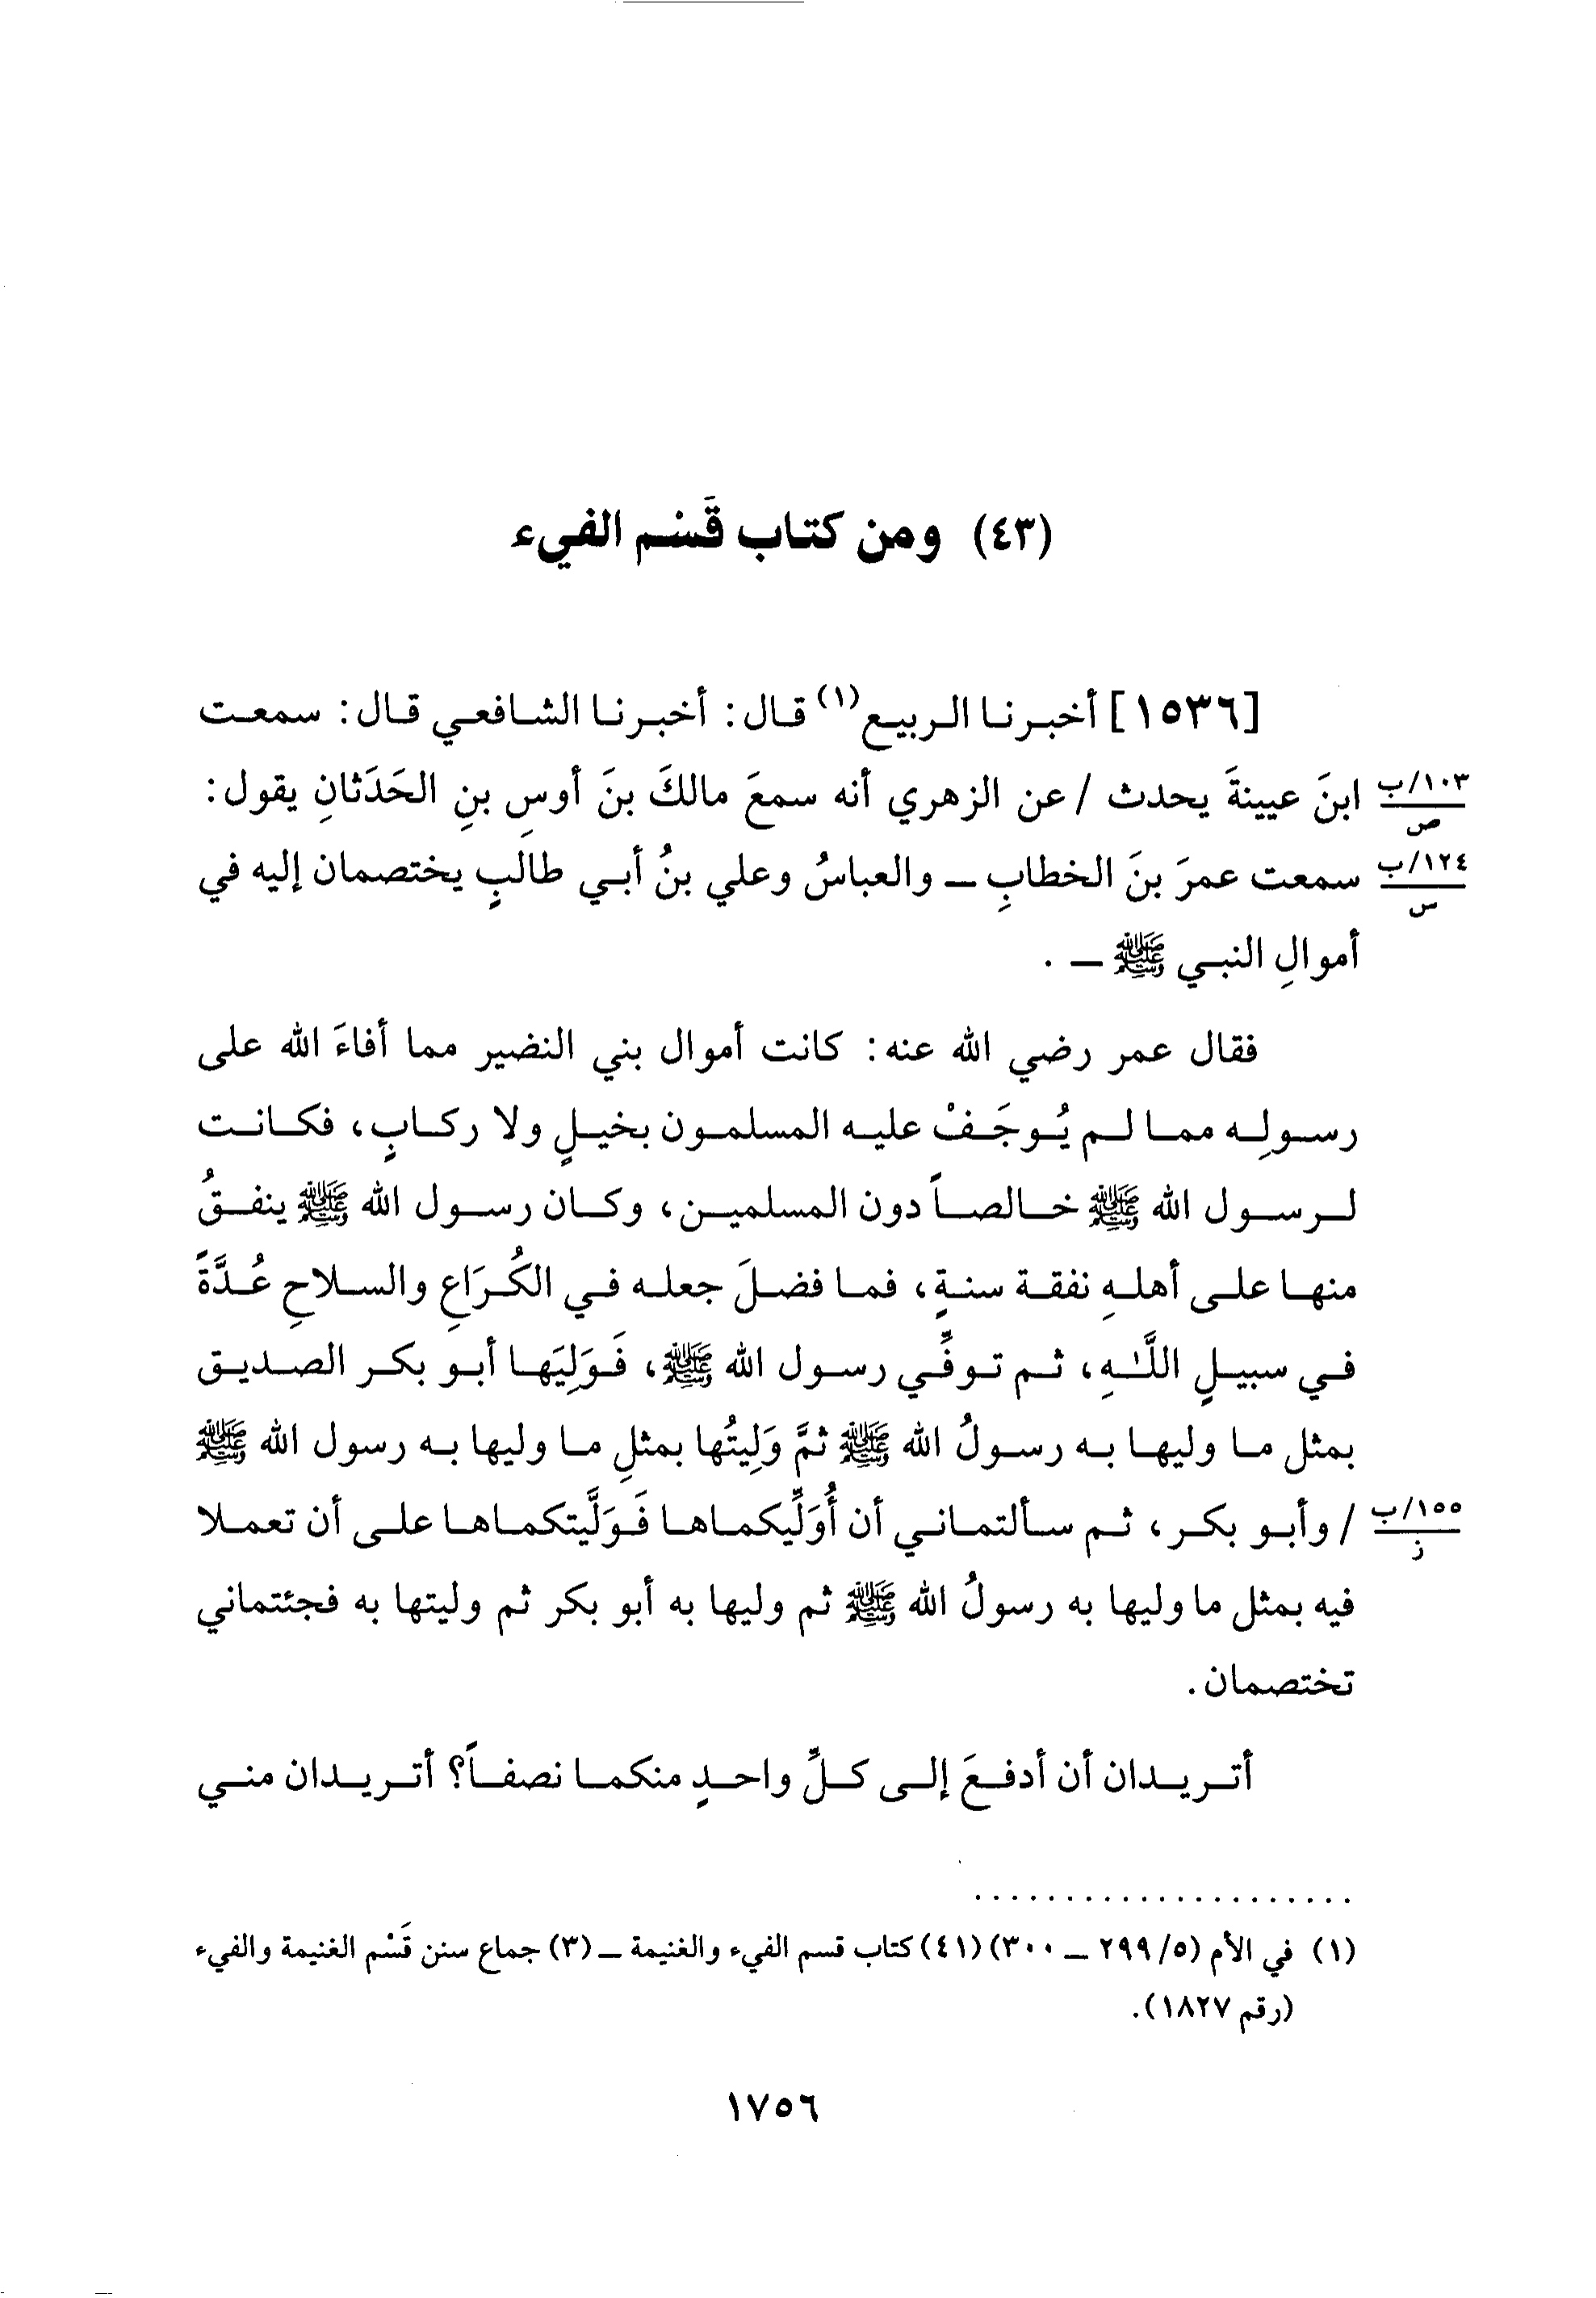 (٤٣) ومن كتاب قَسْم الفيء
[١٥٣٦] أخبرنا الربيع(١) قال: أخبرنا الشافعي قال: سمعت
١٠٣/ب
ص
ابنَ عيينةَ يحدث / عن الزهري أنه سمعَ مالكَ بنَ أوسِ بنِ الحَدَثانِ يقول:
١٢٤/ب
س
سمعت عمرَ بنَ الخطابِ ــ والعباسُ وعلي بنُ أبي طالبٍ يختصمان إليه في
أموالِ النبي ﷺ ــ .
فقال عمر رضي الله عنه: كانت أموال بني النضير مما أفاءَ الله على
رسولِه مما لم يُوجَفْ عليه المسلمون بخيلٍ ولا ركابٍ، فكانت
لرسول الله ﷺ خالصاً دون المسلمين، وكان رسول الله ﷺ ينفقُ
منها على أهلهِ نفقة سنةٍ، فما فضلَ جعله في الكُرَاعِ والسلاحِ عُدَّةً
في سبيلِ اللَّهِ، ثم توفِّي رسول الله ﷺ، فَوَلِيَها أبو بكر الصديق
بمثل ما وليها به رسولُ الله ﷺ ثمَّ وَلِيتُها بمثلِ ما وليها به رسول الله ﷺ
١٥٥/ب
ز
/ وأبو بكر، ثم سألتماني أن أُوَلِّيكماها فَوَلَّيتكماها على أن تعملا
فيه بمثل ما وليها به رسولُ الله ﷺ ثم وليها به أبو بكر ثم وليتها به فجئتماني
تختصمان.
أتريدان أن أدفعَ إلى كلِّ واحدٍ منكما نصفاً؟ أتريدان مني
. . . . . . . . . . . . . . . . . . . . .
(١) في الأم (٥/ ٢٩٩ ــ ٣٠٠) (٤١) كتاب قسم الفيء والغنيمة ــ (٣) جماع سنن قَسْم الغنيمة والفيء
(رقم ١٨٢٧).
١٧٥٦